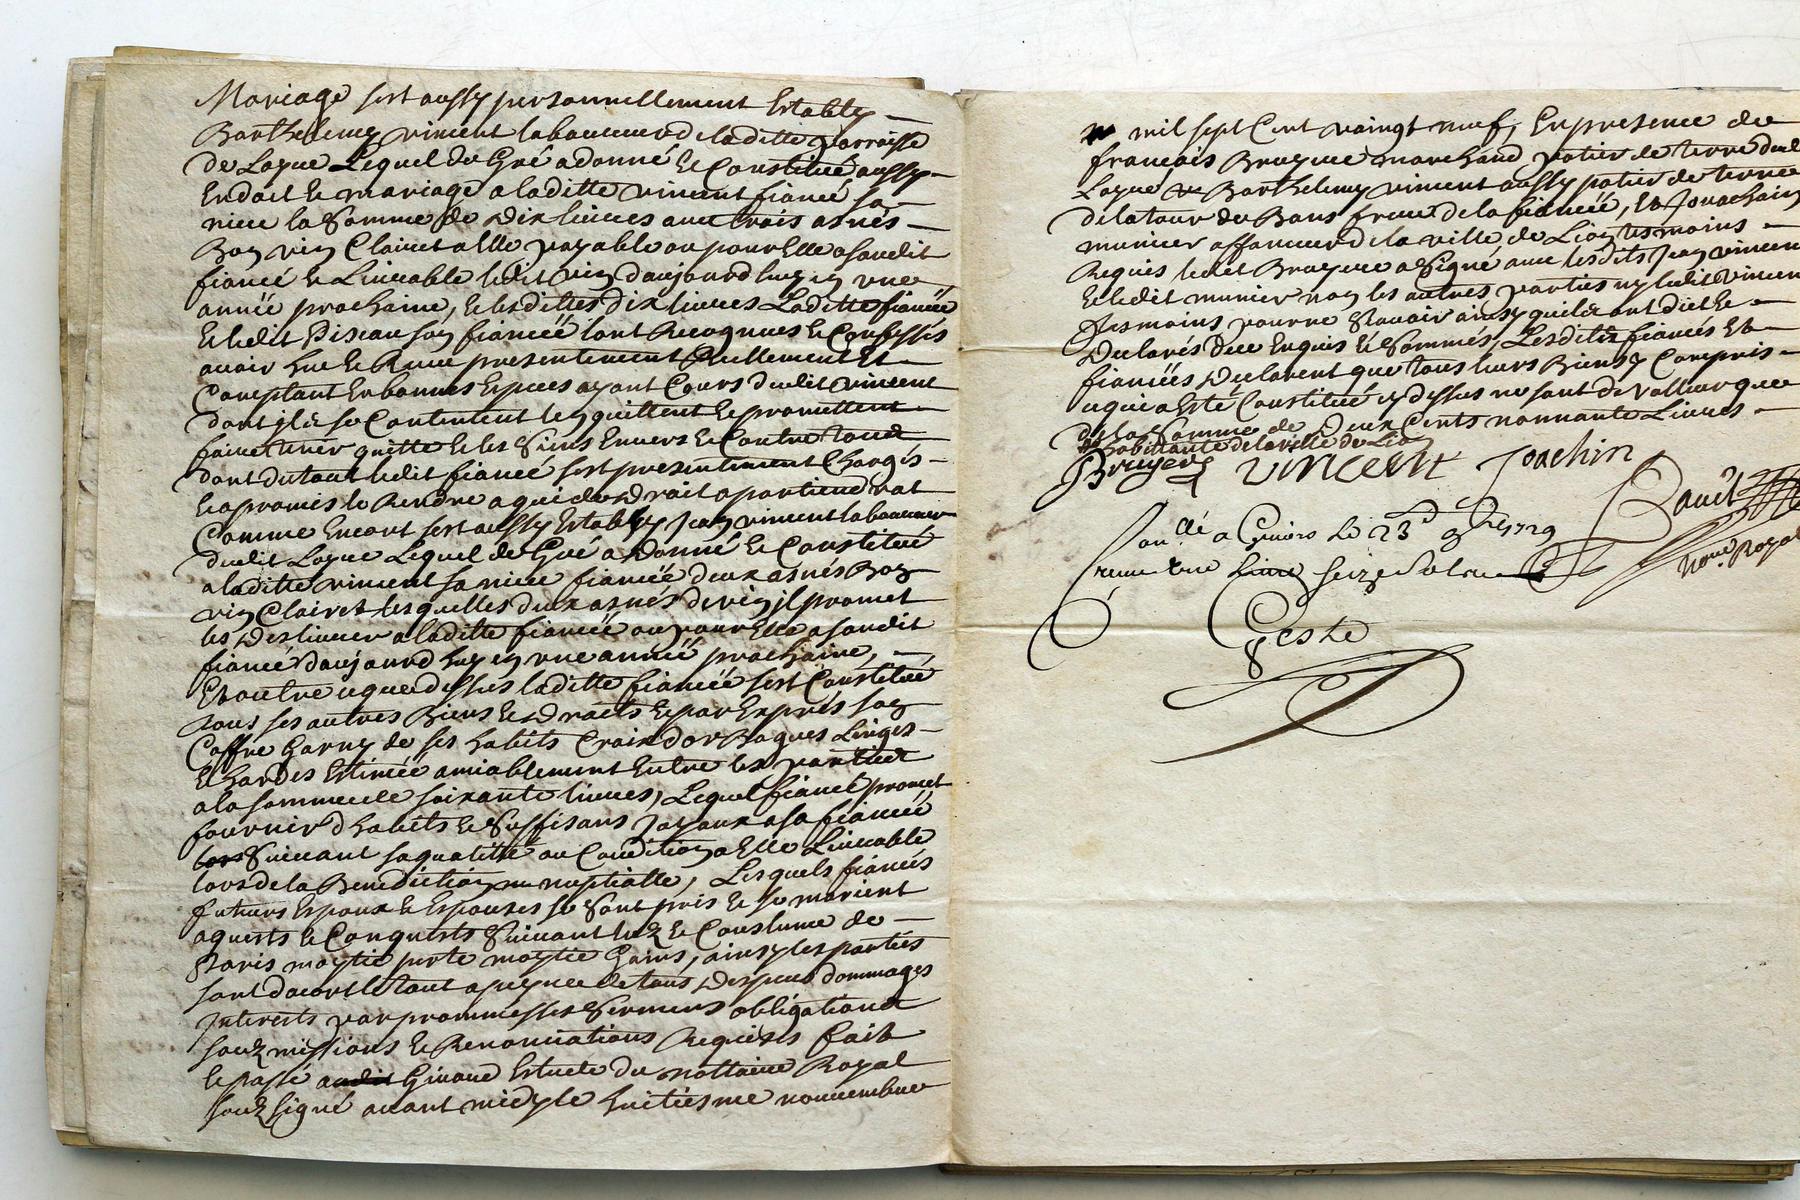 Mariage sest aussy personnellement Estably
Barthelemy vincent laboureur de laditte parroisse
de Loyue Lequel de Gré a donné et Constitué aussy
En dot et mariage a laditte vincent fiancé sa
niece la Somme de Dix livres avec trois asnés
Bon vin Clairet a Elle payable ou pour Elle a sondit
fiancé et Livrable ledit vin daujourd huy en une
année prochaine, et lesdittes dix livres Laditte fiancée
et ledit Piseau son fiancé lont Recognues et Confessés
avoir heu et Receu presentement Reellement Et
Comptant En bonnes Especes ayant Cours dudit vincent
dont ils se Contentent len quittent et promettent
faire tenir quitte et les Siens Envers et Contre tous
dont du tout ledit fiancé sest presentement Chargés
et a promis le Rendre a qui de droit apartiendrat
Comme Encore sest aussy Estably Jean vincent laboureur
dudit Loyue Lequel de Gré a donné et Constitué
a laditte vincent sa niece fiancée deux asnés Bon
vin Clairet lesquelles deux asnés de vin jl promet
les deslivrer a laditte fiancée ou pour Elle a sondit
fiancé daujourd huy en une année prochaine,
Et outre ce que dessus laditte fiancée sest Constitué
tous ses autres Biens et droits et par Exprés son
Coffre Garny de ses habits Croix dor Bagues Linges
et hardes Estimée amiablement Entre les parties
a la somme de soixante livres, Lequel fiancé promet
fournir dhabits et Suffisans Joyaux a sa fiancée
Suivant sa qualitté ou Condition a Elle Livrable
lors de la Benediction nuptialle, Lesquels fiancés
futurs Espoux et Espouses se Sont pris et se marient
aquests et Conquests Suivant luz et Coustume de
Paris moytié perte moytié Gains, ainsy les parties
sont dacort le tout a peynne de tous Despens dommages
Interests par prommesses Sermens obligations
souzmissions et Renontiations Requises fait
et passé Givord Estude du nottaire Royal
souz signé avant midy le huitiesme nouvembre
mil sept Cent vaingt neuf, En presence de
francois Bruyere marchand potier de terre dudit
Loyue Barthelemy vincent aussy potier de terre
de la tour de Bans frere de la fiancée, et Jouachain
munier affaneur de la ville de Lion tesmoins
Requis ledit Bruyere a Signé avec lesdits Jean vincent
et ledit munier non les autres parties ny ledit vincent
tesmoins pour ne Scavoir ainsy quils ont dict et
Declarés de ce Enquis et Sommés, Lesdits fiancés Et
fiancées declarent que tous leurs Biens y Compris
ce qui a Esté Constitué cy dessus ne sont de valleur que
de la Somme de Deux Cents nonnante Livres
habittante de la ville de Lion
Bruyere vincent Joachin
Con.llé a Givors le 23d 9bre 1729
une Livre seize Sols
Geste
no.re Royal